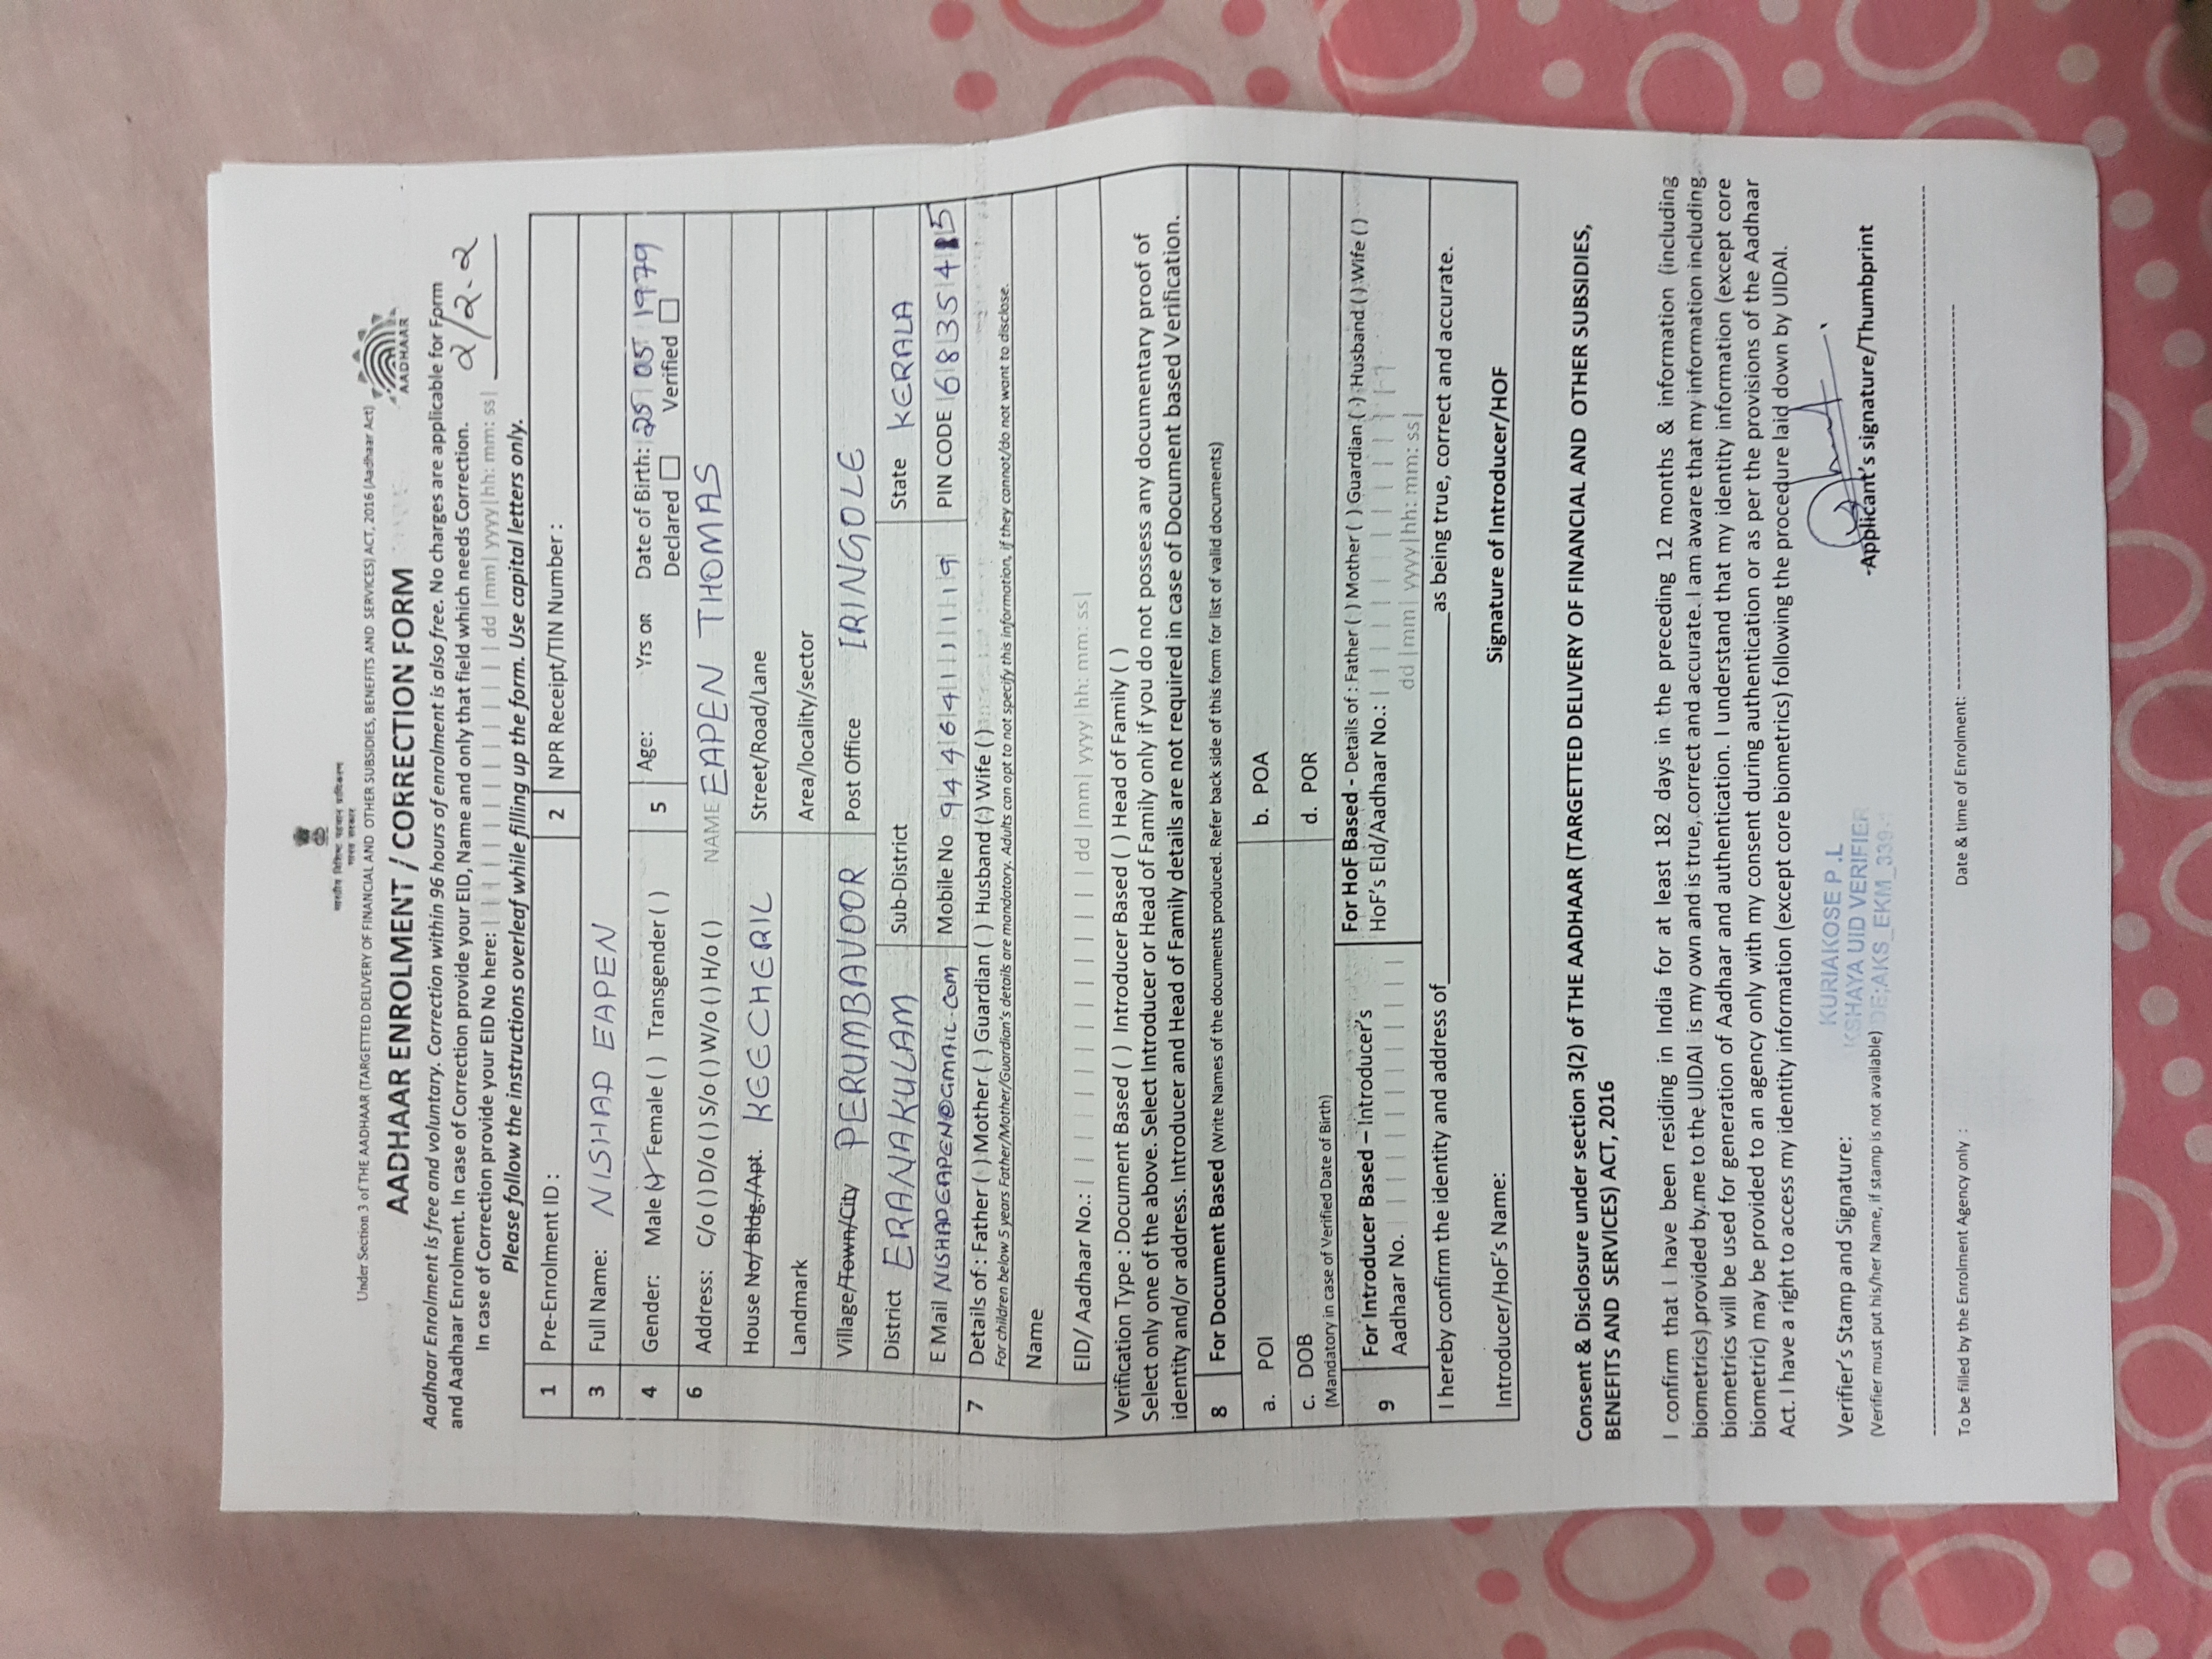 भारतीय विशिष्ट पहचान प्राधिकरण
भारत सरकार
Under Section 3 of THE AADHAAR (TARGETTED DELIVERY OF FINANCIAL AND OTHER SUBSIDIES, BENEFITS AND SERVICES) ACT, 2016 (Aadhaar Act)
AADHAAR
AADHAAR ENROLMENT / CORRECTION FORM
Aadhaar Enrolment is free and voluntary. Correction within 96 hours of enrolment is also free. No charges are applicable for Form
and Aadhaar Enrolment. In case of Correction provide your EID, Name and only that field which needs Correction.
2/2-2
In case of Correction provide your EID No here: dd |mm| yyyy|hh: mm: ss|
Please follow the instructions overleaf while filling up the form. Use capital letters only.
1 Pre-Enrolment ID : 2 NPR Receipt/TIN Number :
3 Full Name: NISHAD EAPEN
4 Gender: Male ( ) Female ( ) Transgender ( ) 5 Age: Yrs OR Date of Birth: 25 05 1979
Declared Verified
6 Address: C/o ( ) D/o ( ) S/o ( ) W/o ( ) H/o ( ) NAME EAPEN THOMAS
House No/ Bldg./Apt. KEECHERIL Street/Road/Lane
Landmark Area/locality/sector
Village/Town/City PERUMBAVOOR Post Office IRINGOLE
District ERANAKULAM Sub-District State KERALA
E Mail NISHADEAPEN@GMAIL.COM Mobile No 9446411119 PIN CODE 683545
7 Details of : Father ( ) Mother ( ) Guardian ( ) Husband ( ) Wife ( )
For children below 5 years Father/Mother/Guardian's details are mandatory. Adults can opt to not specify this information, if they cannot/do not want to disclose.
Name
EID/ Aadhaar No.: dd |mm| yyyy|hh: mm: ss|
Verification Type : Document Based ( ) Introducer Based ( ) Head of Family ( )
Select only one of the above. Select Introducer or Head of Family only if you do not possess any documentary proof of
identity and/or address. Introducer and Head of Family details are not required in case of Document based Verification.
8 For Document Based (Write Names of the documents produced. Refer back side of this form for list of valid documents)
a. POI b. POA
c. DOB d. POR
(Mandatory in case of Verified Date of Birth)
9 For Introducer Based – Introducer's For HoF Based - Details of : Father ( ) Mother ( ) Guardian ( ) Husband ( ) Wife ( )
Aadhaar No. HoF's EId/Aadhaar No.:
dd |mm| yyyy|hh: mm: ss|
I hereby confirm the identity and address of as being true, correct and accurate.
Introducer/HoF's Name: Signature of Introducer/HOF
Consent & Disclosure under section 3(2) of THE AADHAAR (TARGETTED DELIVERY OF FINANCIAL AND OTHER SUBSIDIES,
BENEFITS AND SERVICES) ACT, 2016
I confirm that I have been residing in India for at least 182 days in the preceding 12 months & information (including
biometrics) provided by me to the UIDAI is my own and is true, correct and accurate. I am aware that my information including
biometrics will be used for generation of Aadhaar and authentication. I understand that my identity information (except core
biometric) may be provided to an agency only with my consent during authentication or as per the provisions of the Aadhaar
Act. I have a right to access my identity information (except core biometrics) following the procedure laid down by UIDAI.
KURIAKOSE P.L
Verifier's Stamp and Signature: KSHAYA UID VERIFIER
(Verifier must put his/her Name, if stamp is not available) -Applicant's signature/Thumbprint
To be filled by the Enrolment Agency only : Date & time of Enrolment: